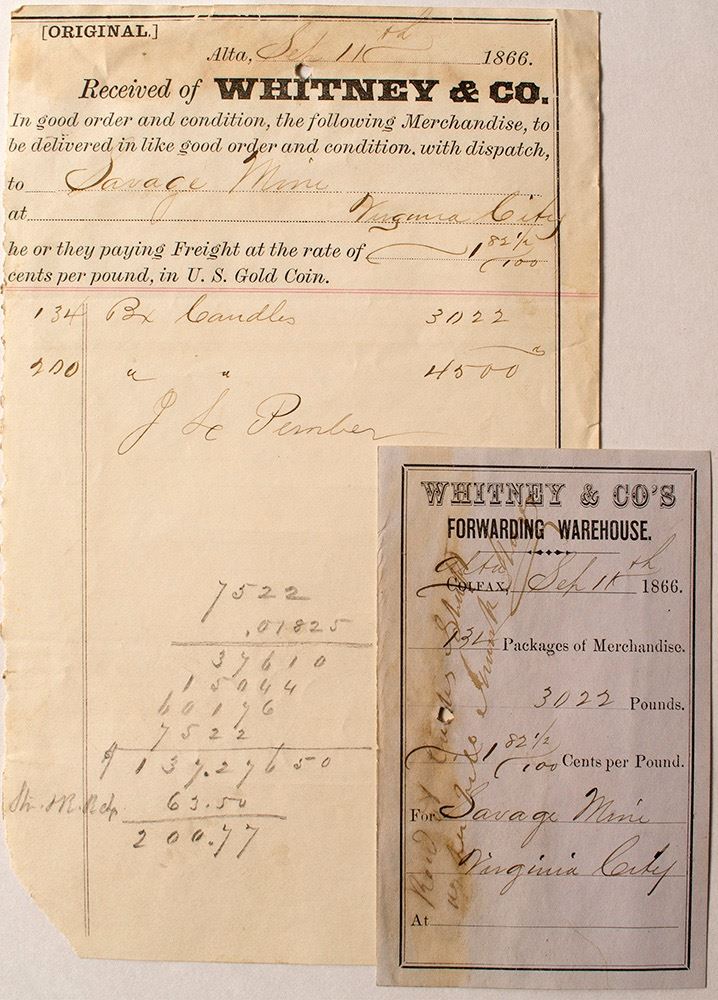 [ORIGINAL.]
Alta, Sep 11th 1866.
Received of WHITNEY & CO.
In good order and condition, the following Merchandise, to
be delivered in like good order and condition, with dispatch,
to Savage Mine
at Virginia City
he or they paying Freight at the rate of 1 82½/100
cents per pound, in U. S. Gold Coin.
134 Bx Candles 3022
200 " " 4500
7522
.01825
37610
15044
60176
7522
$ 137.27650
63.50
200.77
WHITNEY & CO'S
FORWARDING WAREHOUSE.
Alta
COLFAX, Sep 11th 1866.
134 Packages of Merchandise.
3022 Pounds.
1 82½/100 Cents per Pound.
For Savage Mine
Virginia City
At